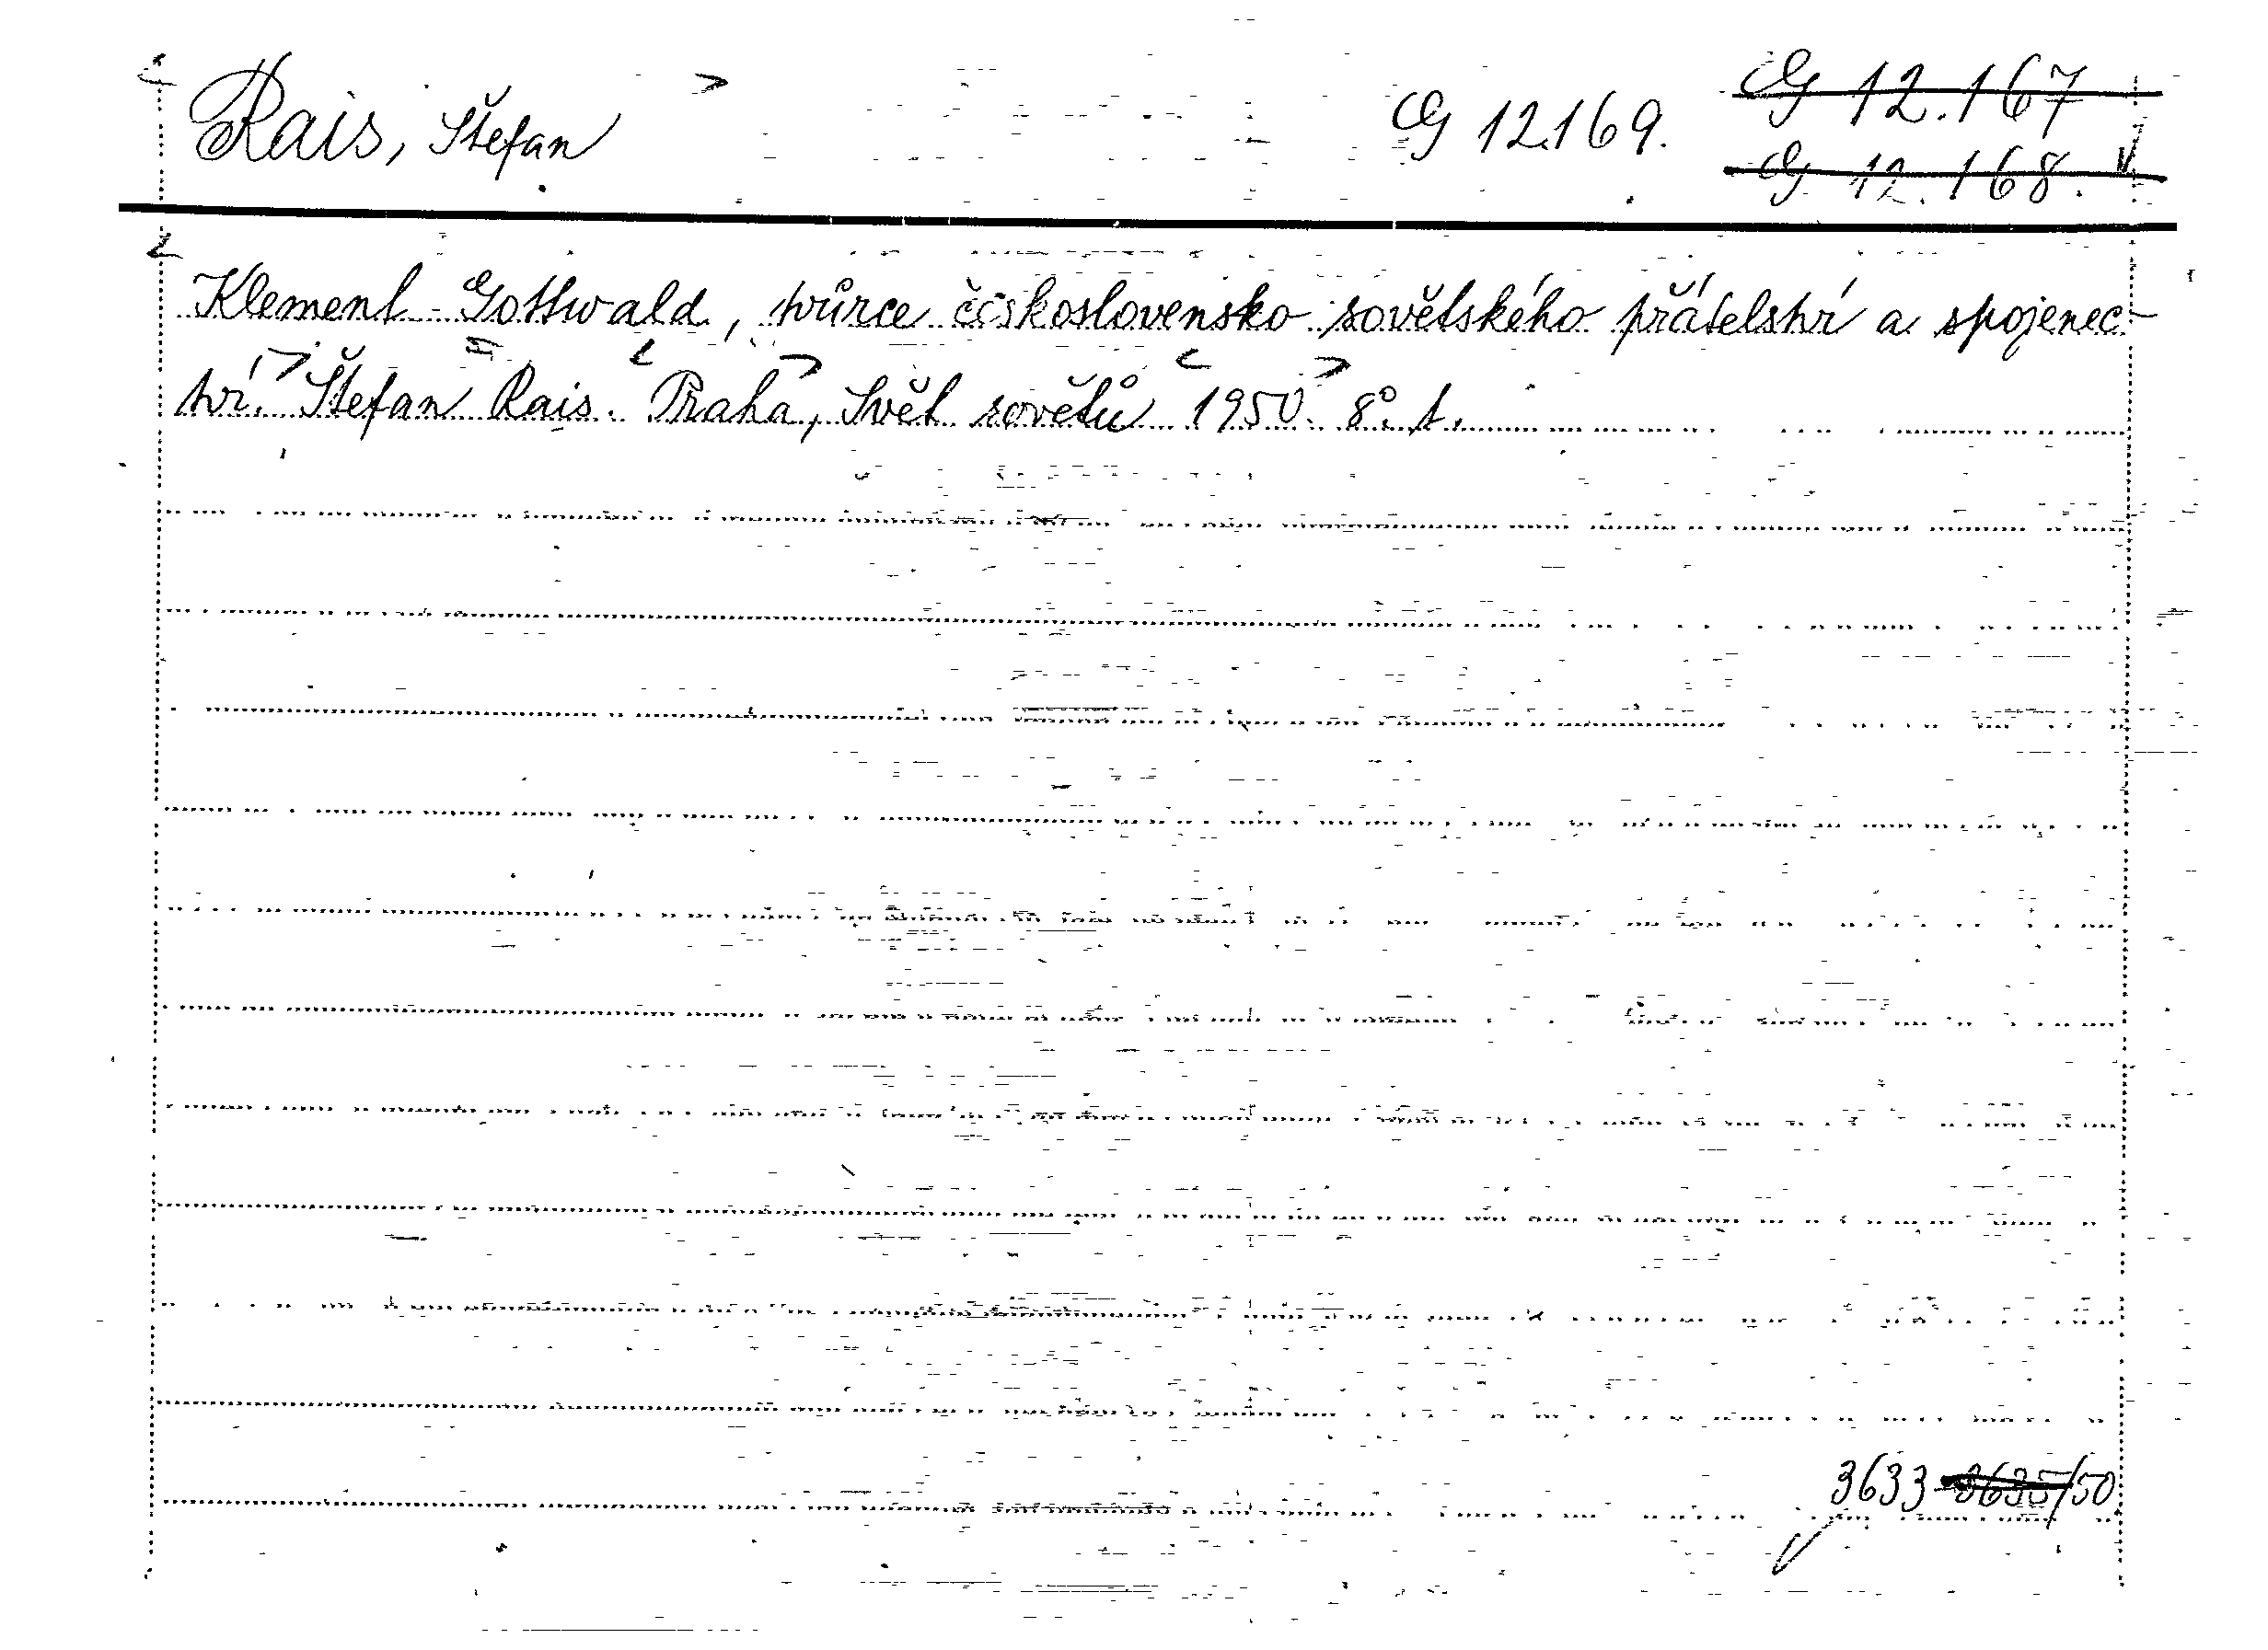 Rais, Štefan G 12.169. G 12.167
G 12.168.
Klement Gottwald, tvůrce československo-sovětského přátelství a spojenec-
tví. Štefan Rais. Praha, Svět sovětů 1950. 8°. 1.
3633-3635/50